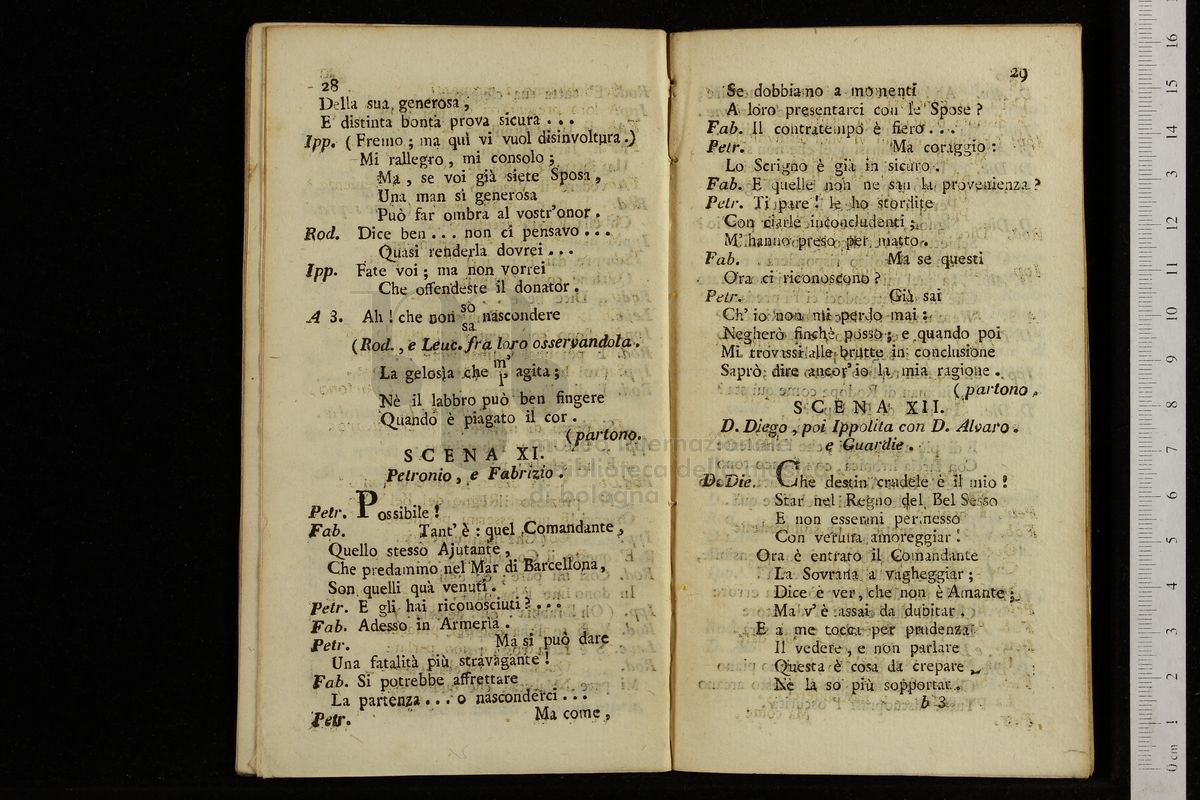 28
Della sua generosa,
E distinta bontà prova sicura . . .
Ipp. ( Fremo ; ma quì vi vuol disinvoltura .)
Mi rallegro , mi consolo ;
Ma , se voi già siete Sposa ,
Una man sì generosa
Può far ombra al vostr'onor .
Rod. Dice ben . . . non ci pensavo . . .
Quasi renderla dovrei . . .
Ipp. Fate voi ; ma non vorrei
Che offendeste il donator .
so
A 3. Ah ! che non nascondere
sa
(Rod. , e Leuc. fra loro osservandola .
m'
La gelosìa che agita ;
p'
Nè il labbro può ben fingere
Quando è piagato il cor .
( partono.
SCENA XI.
Petronio , e Fabrizio .
Petr. Possibile !
Fab. Tant' è : quel Comandante ,
Quello stesso Ajutante ,
Che predammo nel Mar di Barcellona ,
Son quelli quà venuti .
Petr. E gli hai riconosciuti ? . . .
Fab. Adesso in Armerìa .
Petr. Ma si può dare
Una fatalità più stravagante !
Fab. Si potrebbe affrettare
La partenza . . . o nasconderci . . .
Petr. Ma come ,
29
Se dobbiamo a momenti
A loro presentarci con le Spose ?
Fab. Il contratempo è fiero . . .
Petr. Ma coraggio :
Lo Scrigno è già in sicuro .
Fab. E quelle non ne san la provenienza ?
Petr. Ti pare ! le ho stordite
Con ciarle inconcludenti ;
M' hanno preso per matto .
Fab. Ma se questi
Ora ci riconoscono ?
Petr. Già sai
Ch' io non mi perdo mai :
Negherò finchè posso ; e quando poi
Mi trovassi alle brutte in conclusione
Saprò dire ancor' io la mia ragione .
( partono .
SCENA XII.
D. Diego , poi Ippolita con D. Alvaro .
e Guardie .
D. Die. Che destin crudele è il mio !
Star nel Regno del Bel Sesso
E non essermi permesso
Con veruna amoreggiar !
Ora è entrato il Comandante
La Sovrana a vagheggiar ;
Dice è ver , che non è Amante ;
Ma v' è assai da dubitar .
E a me tocca per prudenza
Il vedere , e non parlare
Questa è cosa da crepare
Nè la so più sopportar .
b 3
museo internazionale
e biblioteca della musica
di bologna
0 cm 1 2 3 4 5 6 7 8 9 10 11 12 13 14 15 16